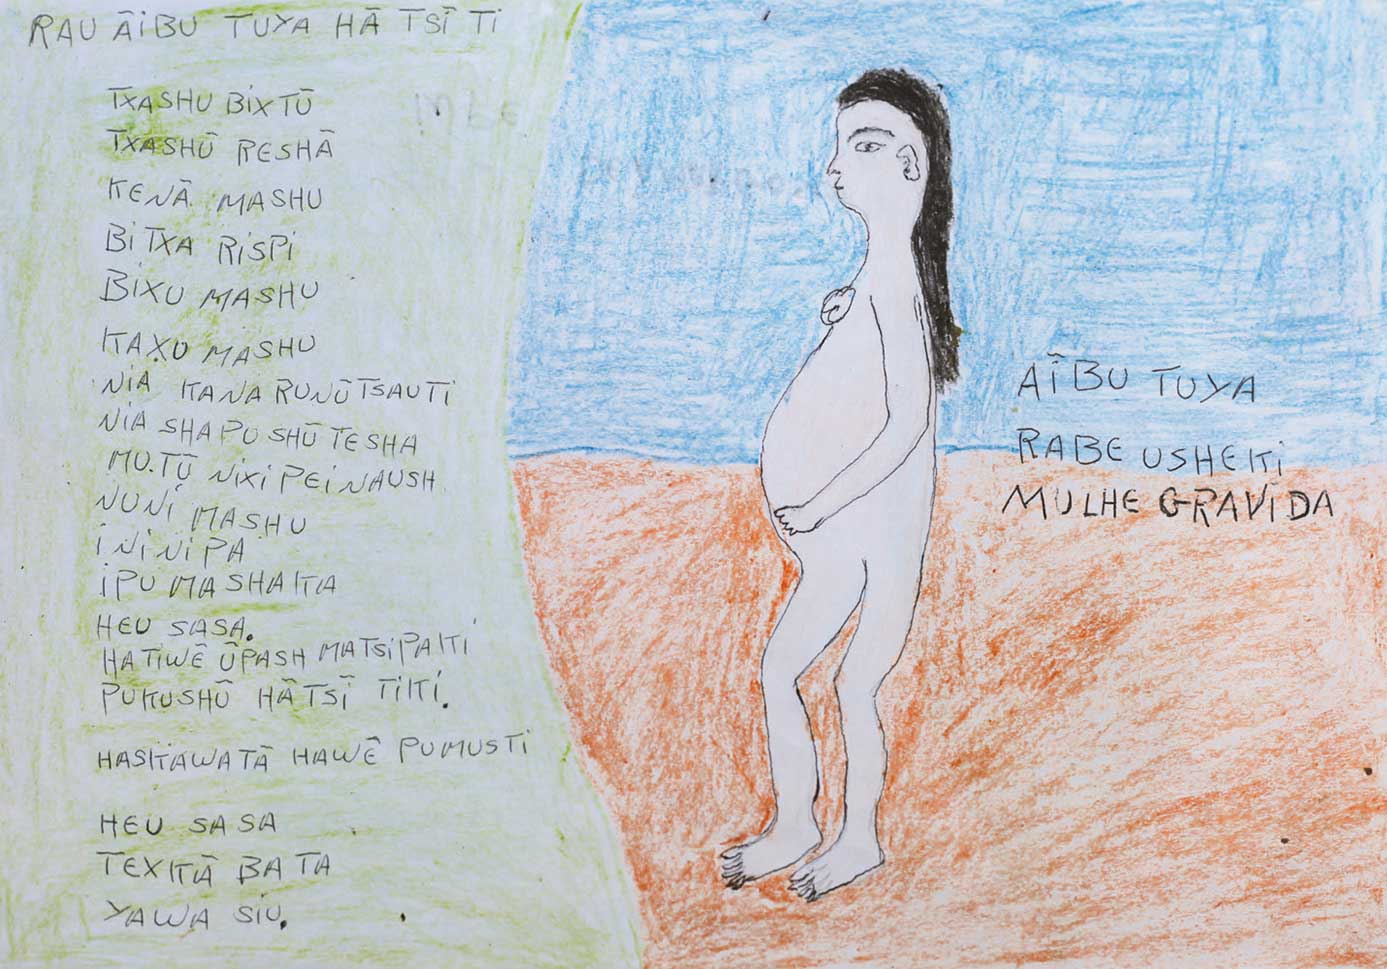 RAU ÃIBU TUYA HÃ TSĨ TI
TXASHU BIXTŨ
TXASHŨ RESHÃ
KENÃ MASHU
BITXA RISPI
BIXU MASHU
KAXU MASHU
NIA KANA RUNŨTSAUTI
NIA SHAPU SHŨ TESHA
MU.TŨ NIXI PEI NAUSH
NUNI MASHU
ININIPA
IPU MASHAKA
HEU SASA.
HATIWẼ ŨPASH MATSIPAKI
PUKUSHŨ HÃTSĨ TIKI.
HASKAWATÃ HAWẼ PUMUSTI
HEU SASA
TEXKÃ BATA
YAWA SIU.
AĨBU TUYA
RABE USHEKI
MULHE GRAVIDA